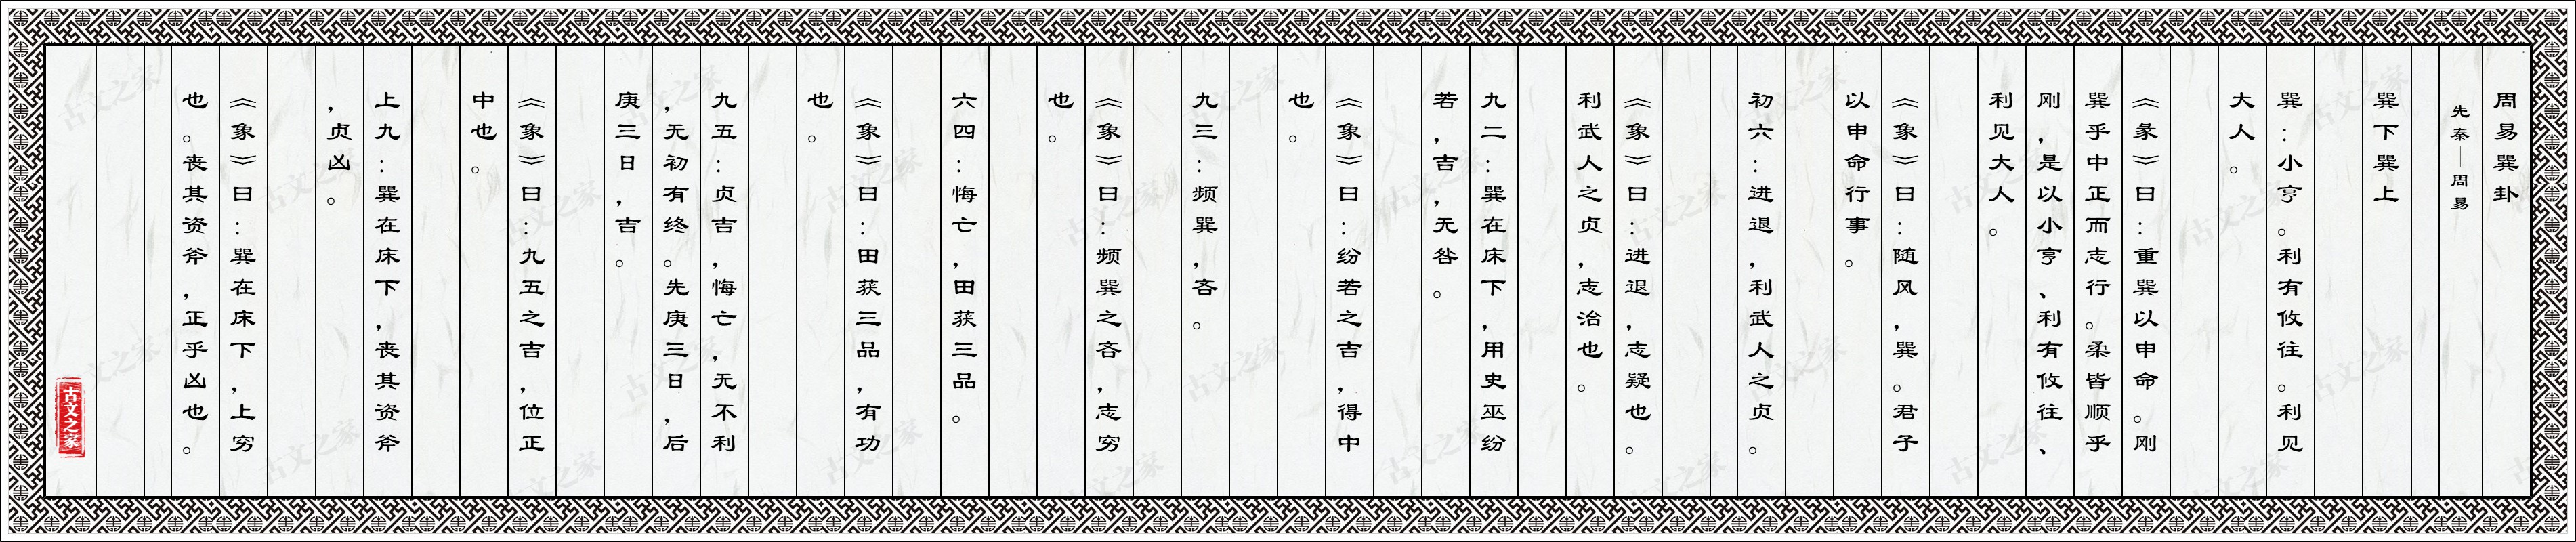 周易巽卦
先秦—周易
巽下巽上
巽：小亨。利有攸往。利见
大人。
《彖》曰：重巽以申命。刚
巽乎中正而志行。柔皆顺乎
刚，是以小亨、利有攸往、
利见大人。
《象》曰：随风，巽。君子
以申命行事。
初六：进退，利武人之贞。
《象》曰：进退，志疑也。
利武人之贞，志治也。
九二：巽在床下，用史巫纷
若，吉，无咎。
《象》曰：纷若之吉，得中
也。
九三：频巽，吝。
《象》曰：频巽之吝，志穷
也。
六四：悔亡，田获三品。
《象》曰：田获三品，有功
也。
九五：贞吉，悔亡，无不利
，无初有终。先庚三日，后
庚三日，吉。
《象》曰：九五之吉，位正
中也。
上九：巽在床下，丧其资斧
，贞凶。
《象》曰：巽在床下，上穷
也。丧其资斧，正乎凶也。
古文之家